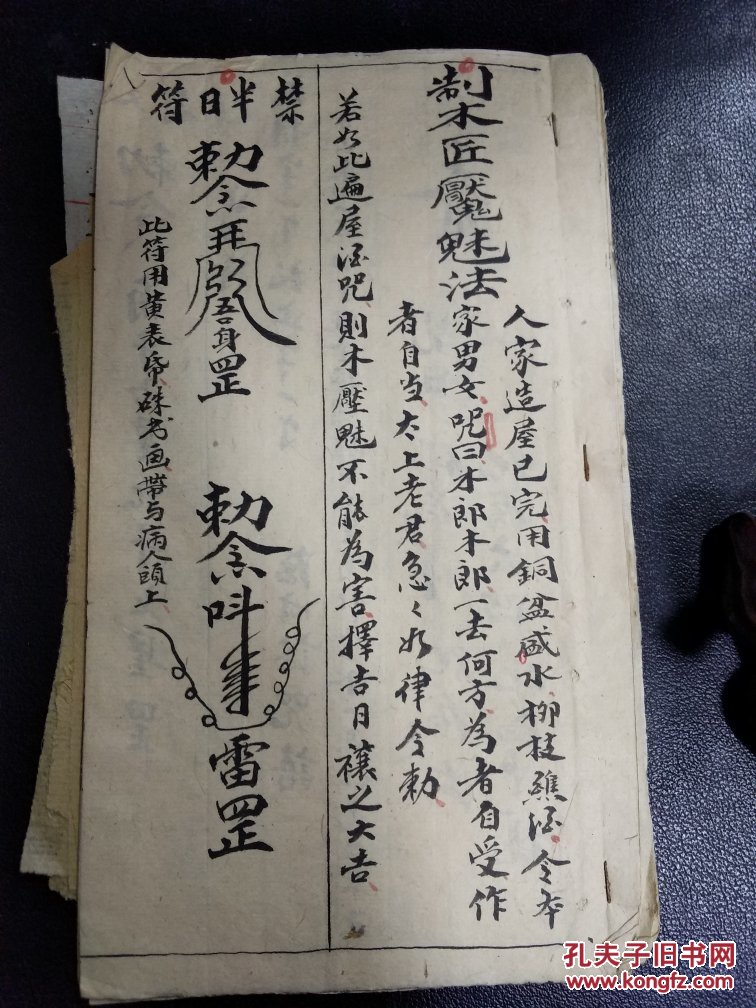 制木匠魘魅法
人家造屋已完用銅盆盛水柳枝蘸洒令本
家男女咒曰木郎木郎一去何方為者自受作
者自当太上老君急々如律令勅
若如此遍屋洒咒則木壓魅不能為害擇吉日禳之大吉
禁畔日符
勅令
吾身罡
勅令
雷罡
此符用黄表帋硃書画帶与病人頭上
孔夫子旧书网
www.kongfz.com